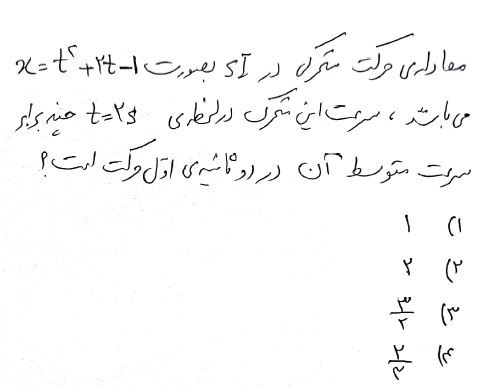 معادله‌ی حرکت متحرکی در SI بصورت x = t² + ۲t - ۱
می‌باشد، سرعت این متحرک در لحظه‌ی t = ۲s چند برابر
سرعت متوسط آن در دو ثانیه‌ی اوّل حرکت است؟
۱) ۱
۲) ۲
۳) ۳/۲
۴) ۲/۳